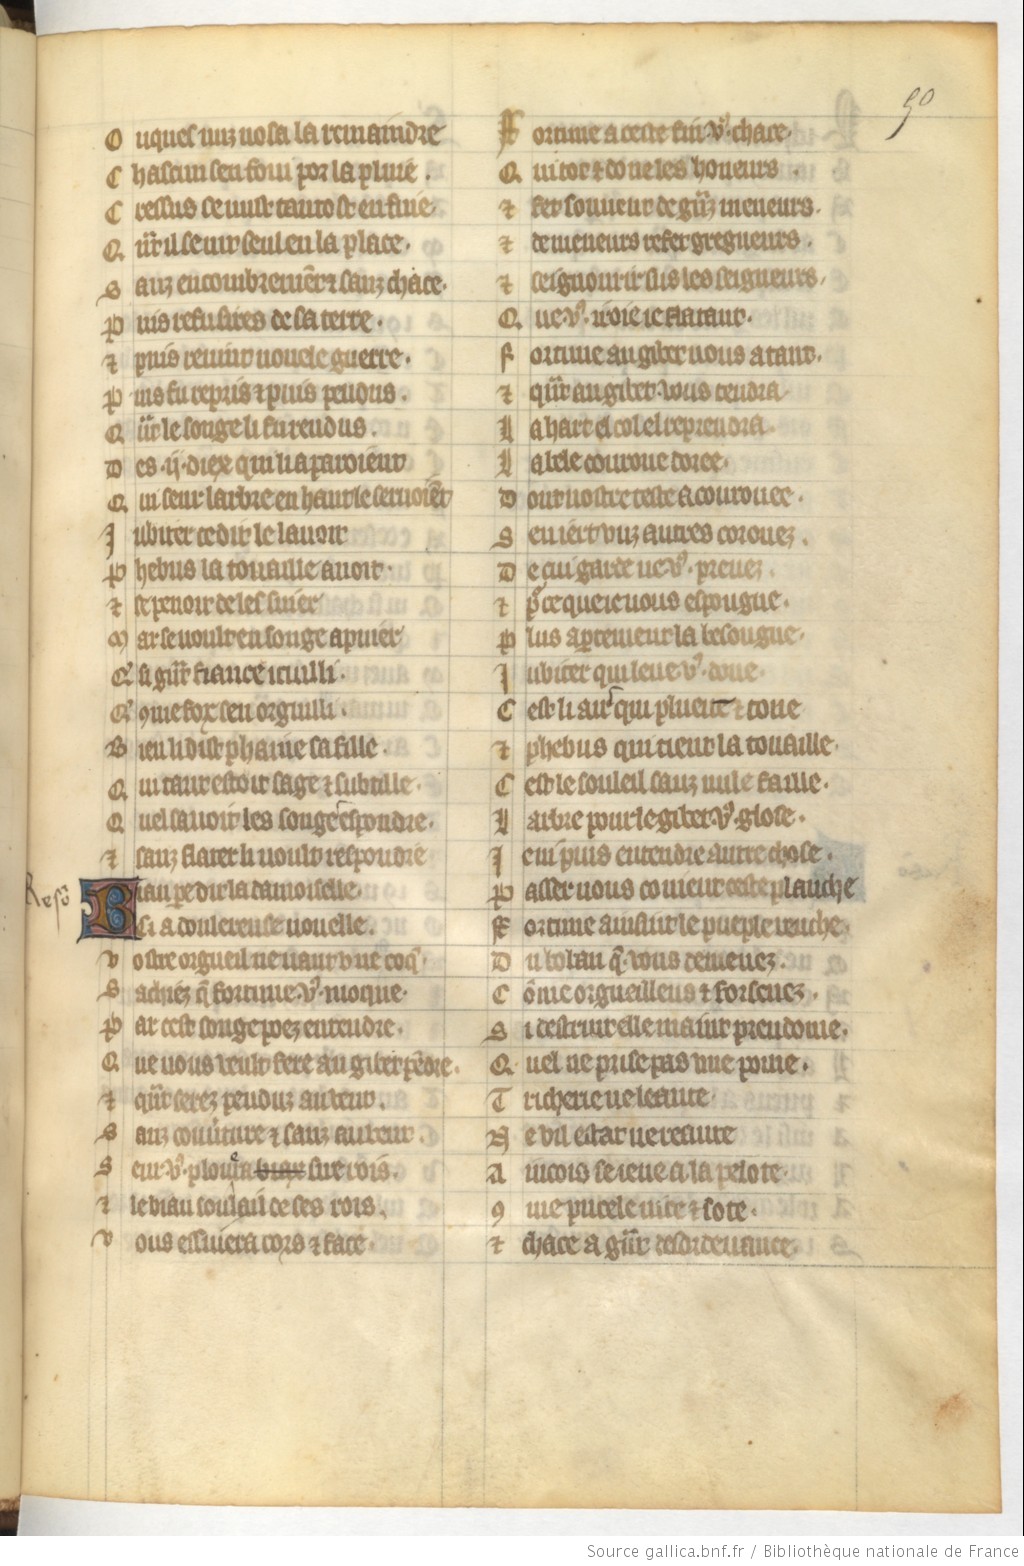 50
O nques nuz nosa la remaindre
C hascun sen foui por la pluie .
C ressus se mist tantost en fuie
Q ͣnt il se uit seul en la place .
S anz encombremēt ⁊ sanz chace .
P uis refu sires de sa terre .
⁊ puis reuint nouele guerre .
P uis fu repris ⁊ puis pendus .
Q ͣnt le songe li fu rendus .
D es .ij. diex qui li aparoient
Q ui seur larbre en haut le seruoiēt
J ubiter ce dit le lauoit
P hebus la touaille auoit .
⁊ se penoit de les suier
M ar se voult en songe apuier
Q ͥ si gͣnt fiance i cuilli .
Q ͥ 9me fox sen orguilli .
B ien li dist phanie sa fille .
Q ui tant estoit sage ⁊ subtille .
Q uel sauoit les songes espondre .
⁊ sanz flater li voult respondre
Reso
B iau pere dit la damoiselle .
Ci a doulereuse nouelle .
V ostre orgueil ne uaut vne coq̄ .
S achiez q̄ fortune v9 moque .
P ar cest songe poez entendre .
Q ue uous veult fere au gibet pēdre .
⁊ qͣnt serez penduz au vent .
S anz couūture ⁊ sanz auvent .
S eur v9 plouura biax sire rois .
⁊ le biau soulau de ses rois .
V ous essuiera cors ⁊ face .
F ortune a ceste fin v9 chace .
Q ui tot ⁊ done les honeurs .
⁊ fet souueur de gͣnz meneurs .
⁊ de meneurs refet gregneurs .
⁊ seignourir sus les seigneurs .
Q ue v9 iroie ie flatant .
F ortune au gibet uous atant .
⁊ qͣnt au gibet vous tendra
L a hart el col el reprendra .
L a bele couronne doree .
D ont uostre teste a couronee .
S en iert vuz autres coronez .
D e qui garde ne v9 prenez .
⁊ pͬ ce que ie uous espongne .
P lus apertement la besongne .
J ubiter qui leue v9 done .
C est li airs qui pluent ⁊ tone
⁊ phebus qui tient la touaille .
C est le souleil sanz nule faille .
L arbre pour le gibet v9 glose .
J e ni puis entendre autre chose .
P asser uous couient ceste planche
F ortune ainsint le pueple venche .
D u bolan q̄ vous demenez .
C ōme orgueilleus ⁊ forsenez .
S i destruit elle maint preudome .
Q uel ne prise pas une pome .
T richerie ne leaute .
N e vil estat ne reaute
A incois se ieue a la pelote .
9 me pucele nice ⁊ sote .
⁊ chace a gͣnt desordenance .
Source gallica.bnf.fr / Bibliothèque nationale de France